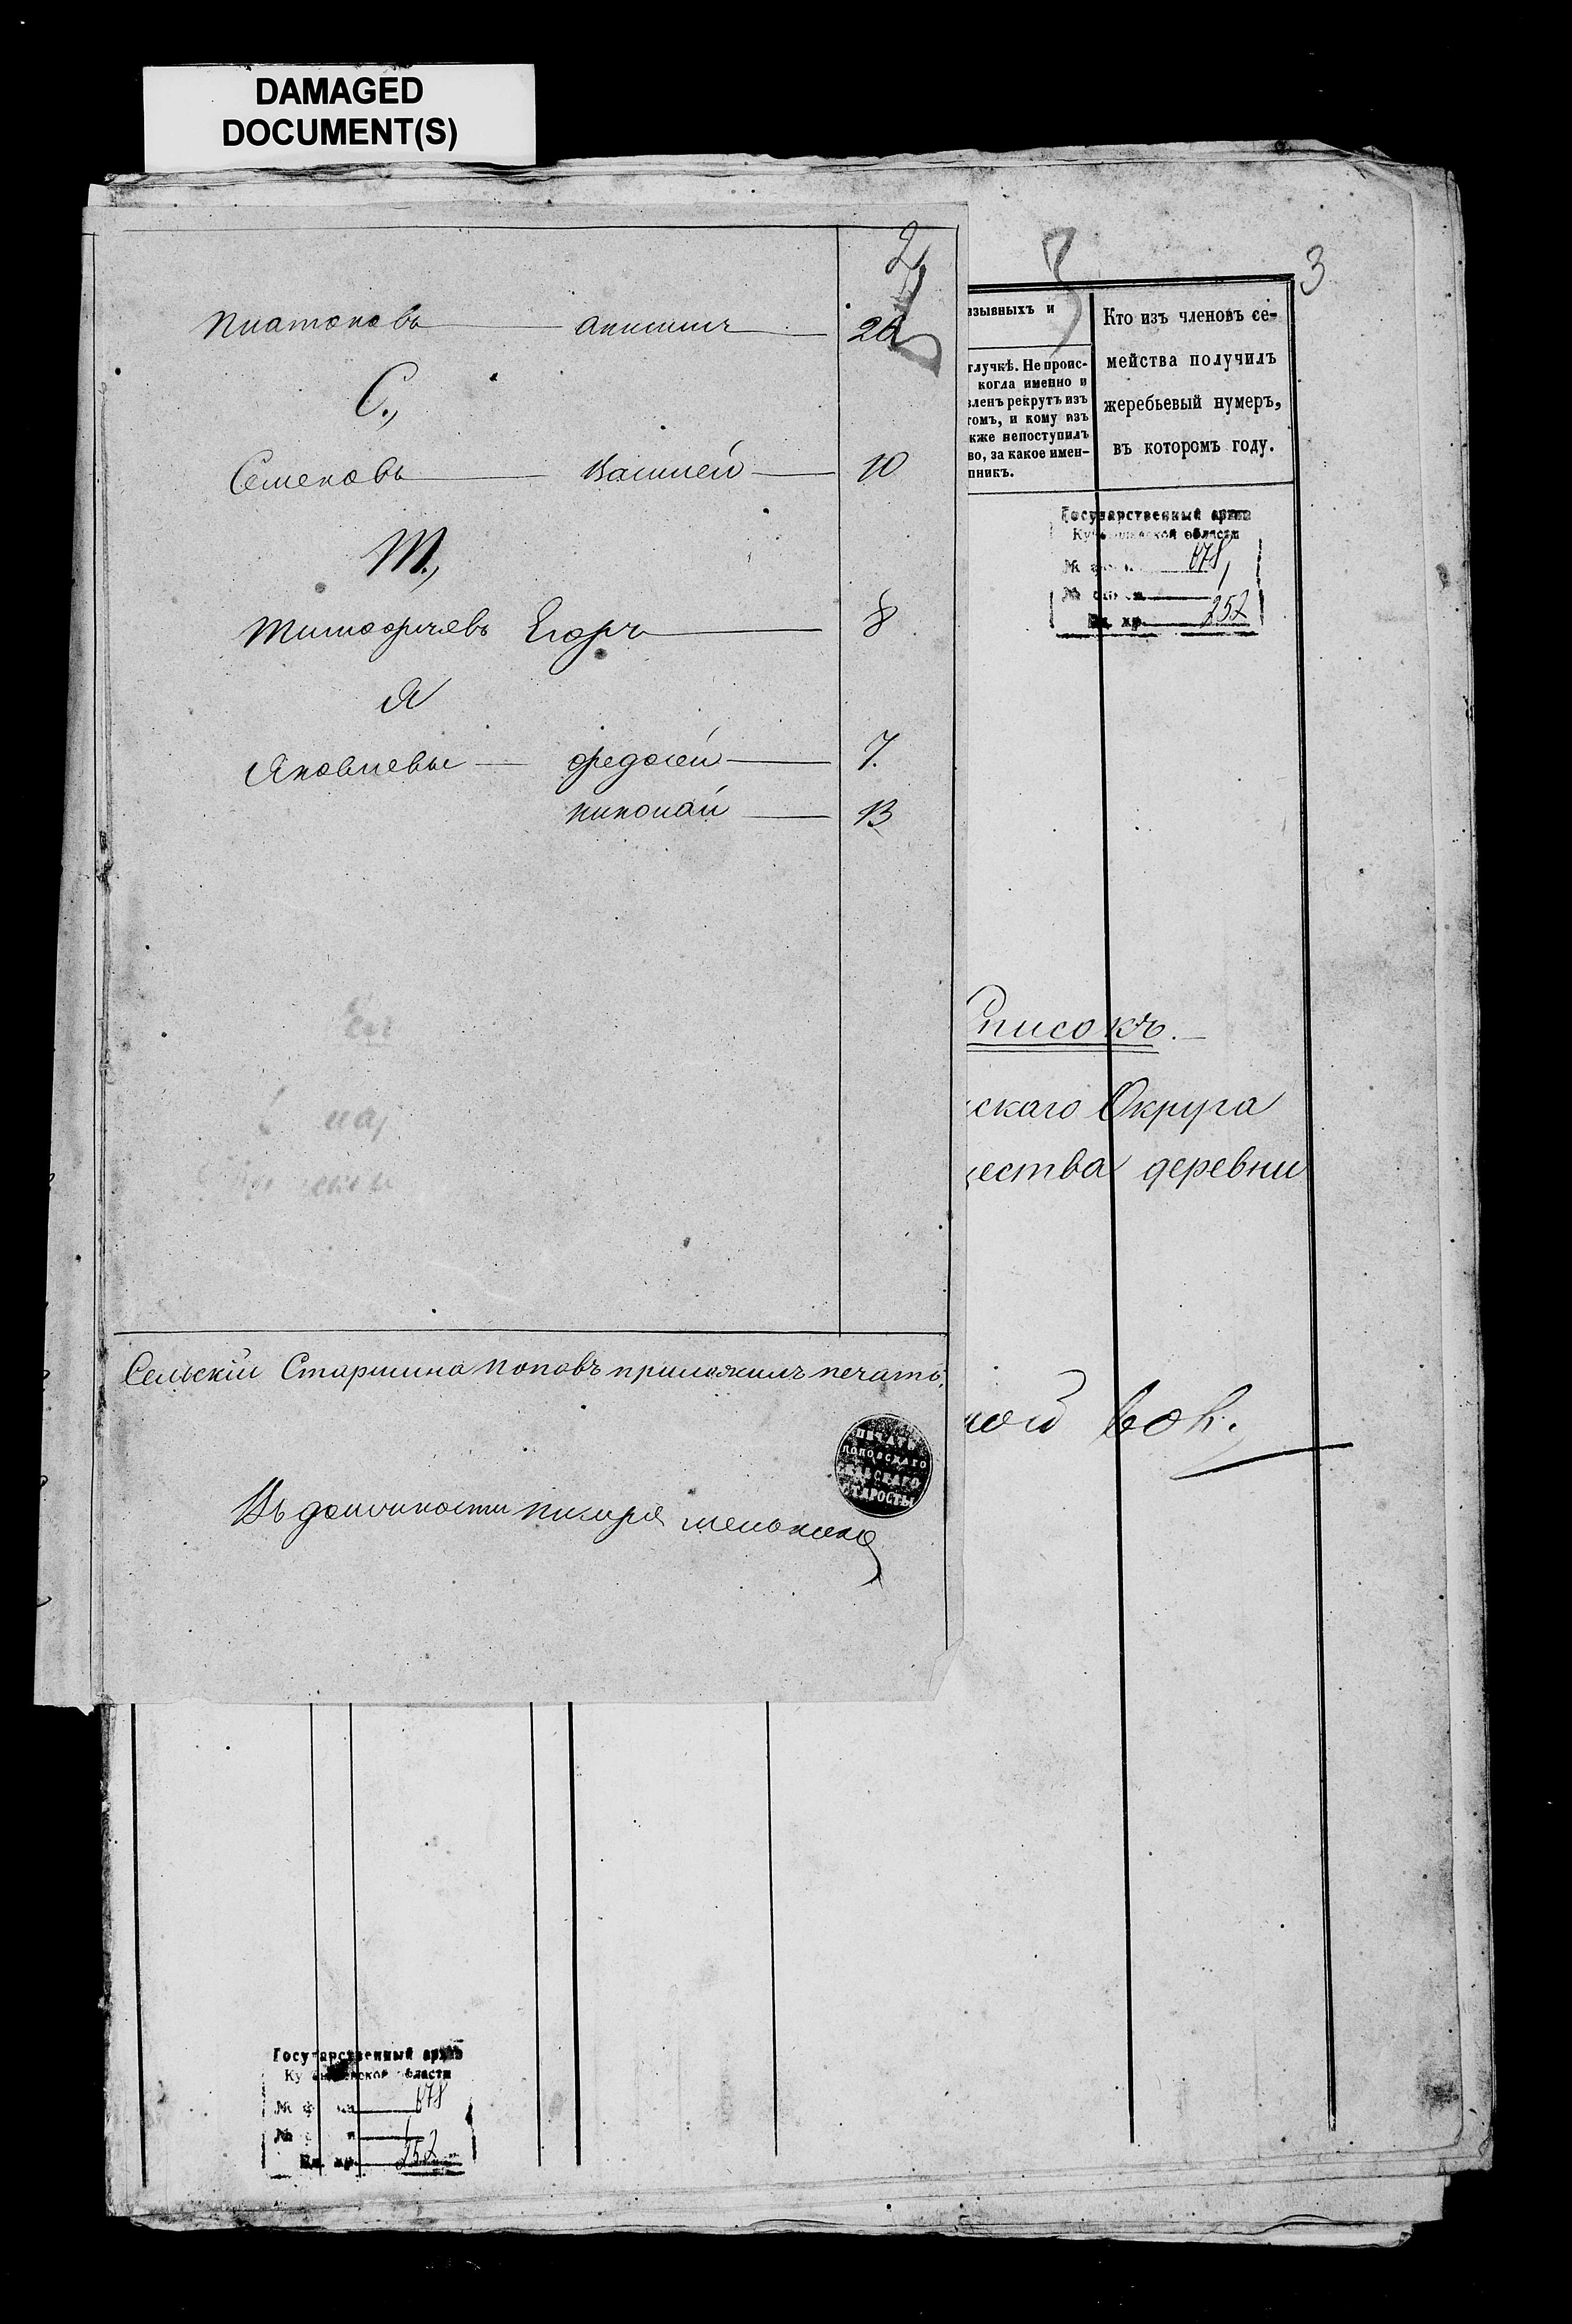 DAMAGED
DOCUMENT(S)
2
3
3
Платоновъ Анисимъ 26
С.,
Семеновъ Василей 10
Т.,
Тимофѣевъ Егоръ 8
Я
Яковлевы Федосей 7.
Николай 13
Сельскій Старшина Поповъ приложилъ печать.
ПЕЧАТЬ
ПОПОВСКАГО
СЕЛЬСКАГО
СТАРОСТЫ
Въ должности писаря
зывныхъ и
тлучкѣ. Не проис-
когла именно и
вленъ рекрутъ изъ
томъ, и кому изъ
кже непоступилъ
во, за какое имен-
пникъ.
Кто изъ членовъ се-
мейства получилъ
жеребьевый нумеръ,
въ которомъ году.
Государственный архив
Куйбышевской области
№ 678
№ 1
Ед. хр. 252
Списокъ.
скаго Округа
ества деревни
ной вол.
Государственный архив
Куйбышевской области
№ 678
№ 1
Ед. хр. 252